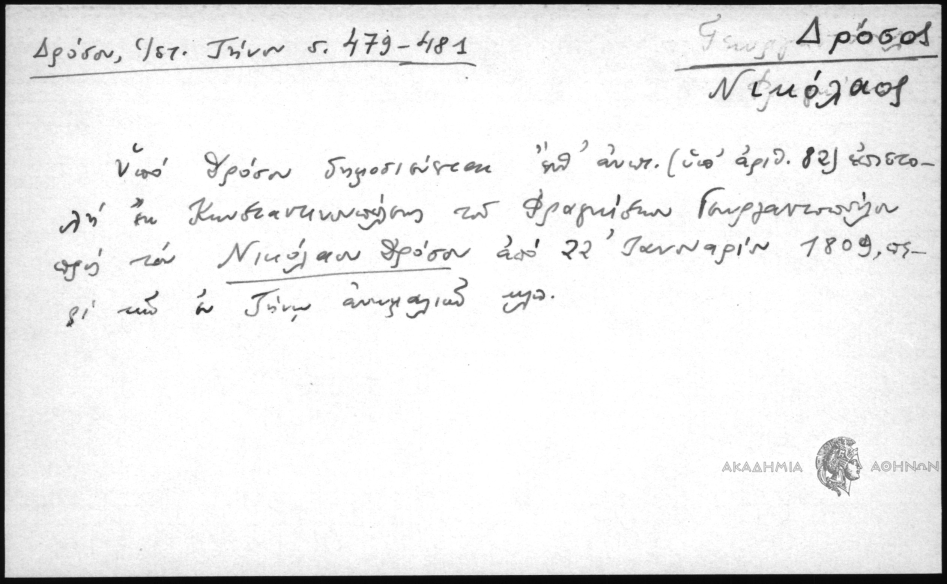 Δρόσου, Ἱστ. Τήνου σ. 479-481
Δρόσος
Νικόλαος
Ὑπό Δρόσου δημοσιεύεται ἔνθ' ἀνωτ. (ὑπ' ἀριθ. 82) ἐπιστο-
λή ἐκ Κωνσταντινουπόλεως τοῦ Φραγκίσκου Γεωργαντοπούλου
πρός τόν Νικόλαον Δρόσον ἀπό 22 Ἰανουαρίου 1809, πε-
ρί τῶν ἐν Τήνῳ ἀνωμαλιῶν κλπ.
ΑΚΑΔΗΜΙΑ ΑΘΗΝΩΝ